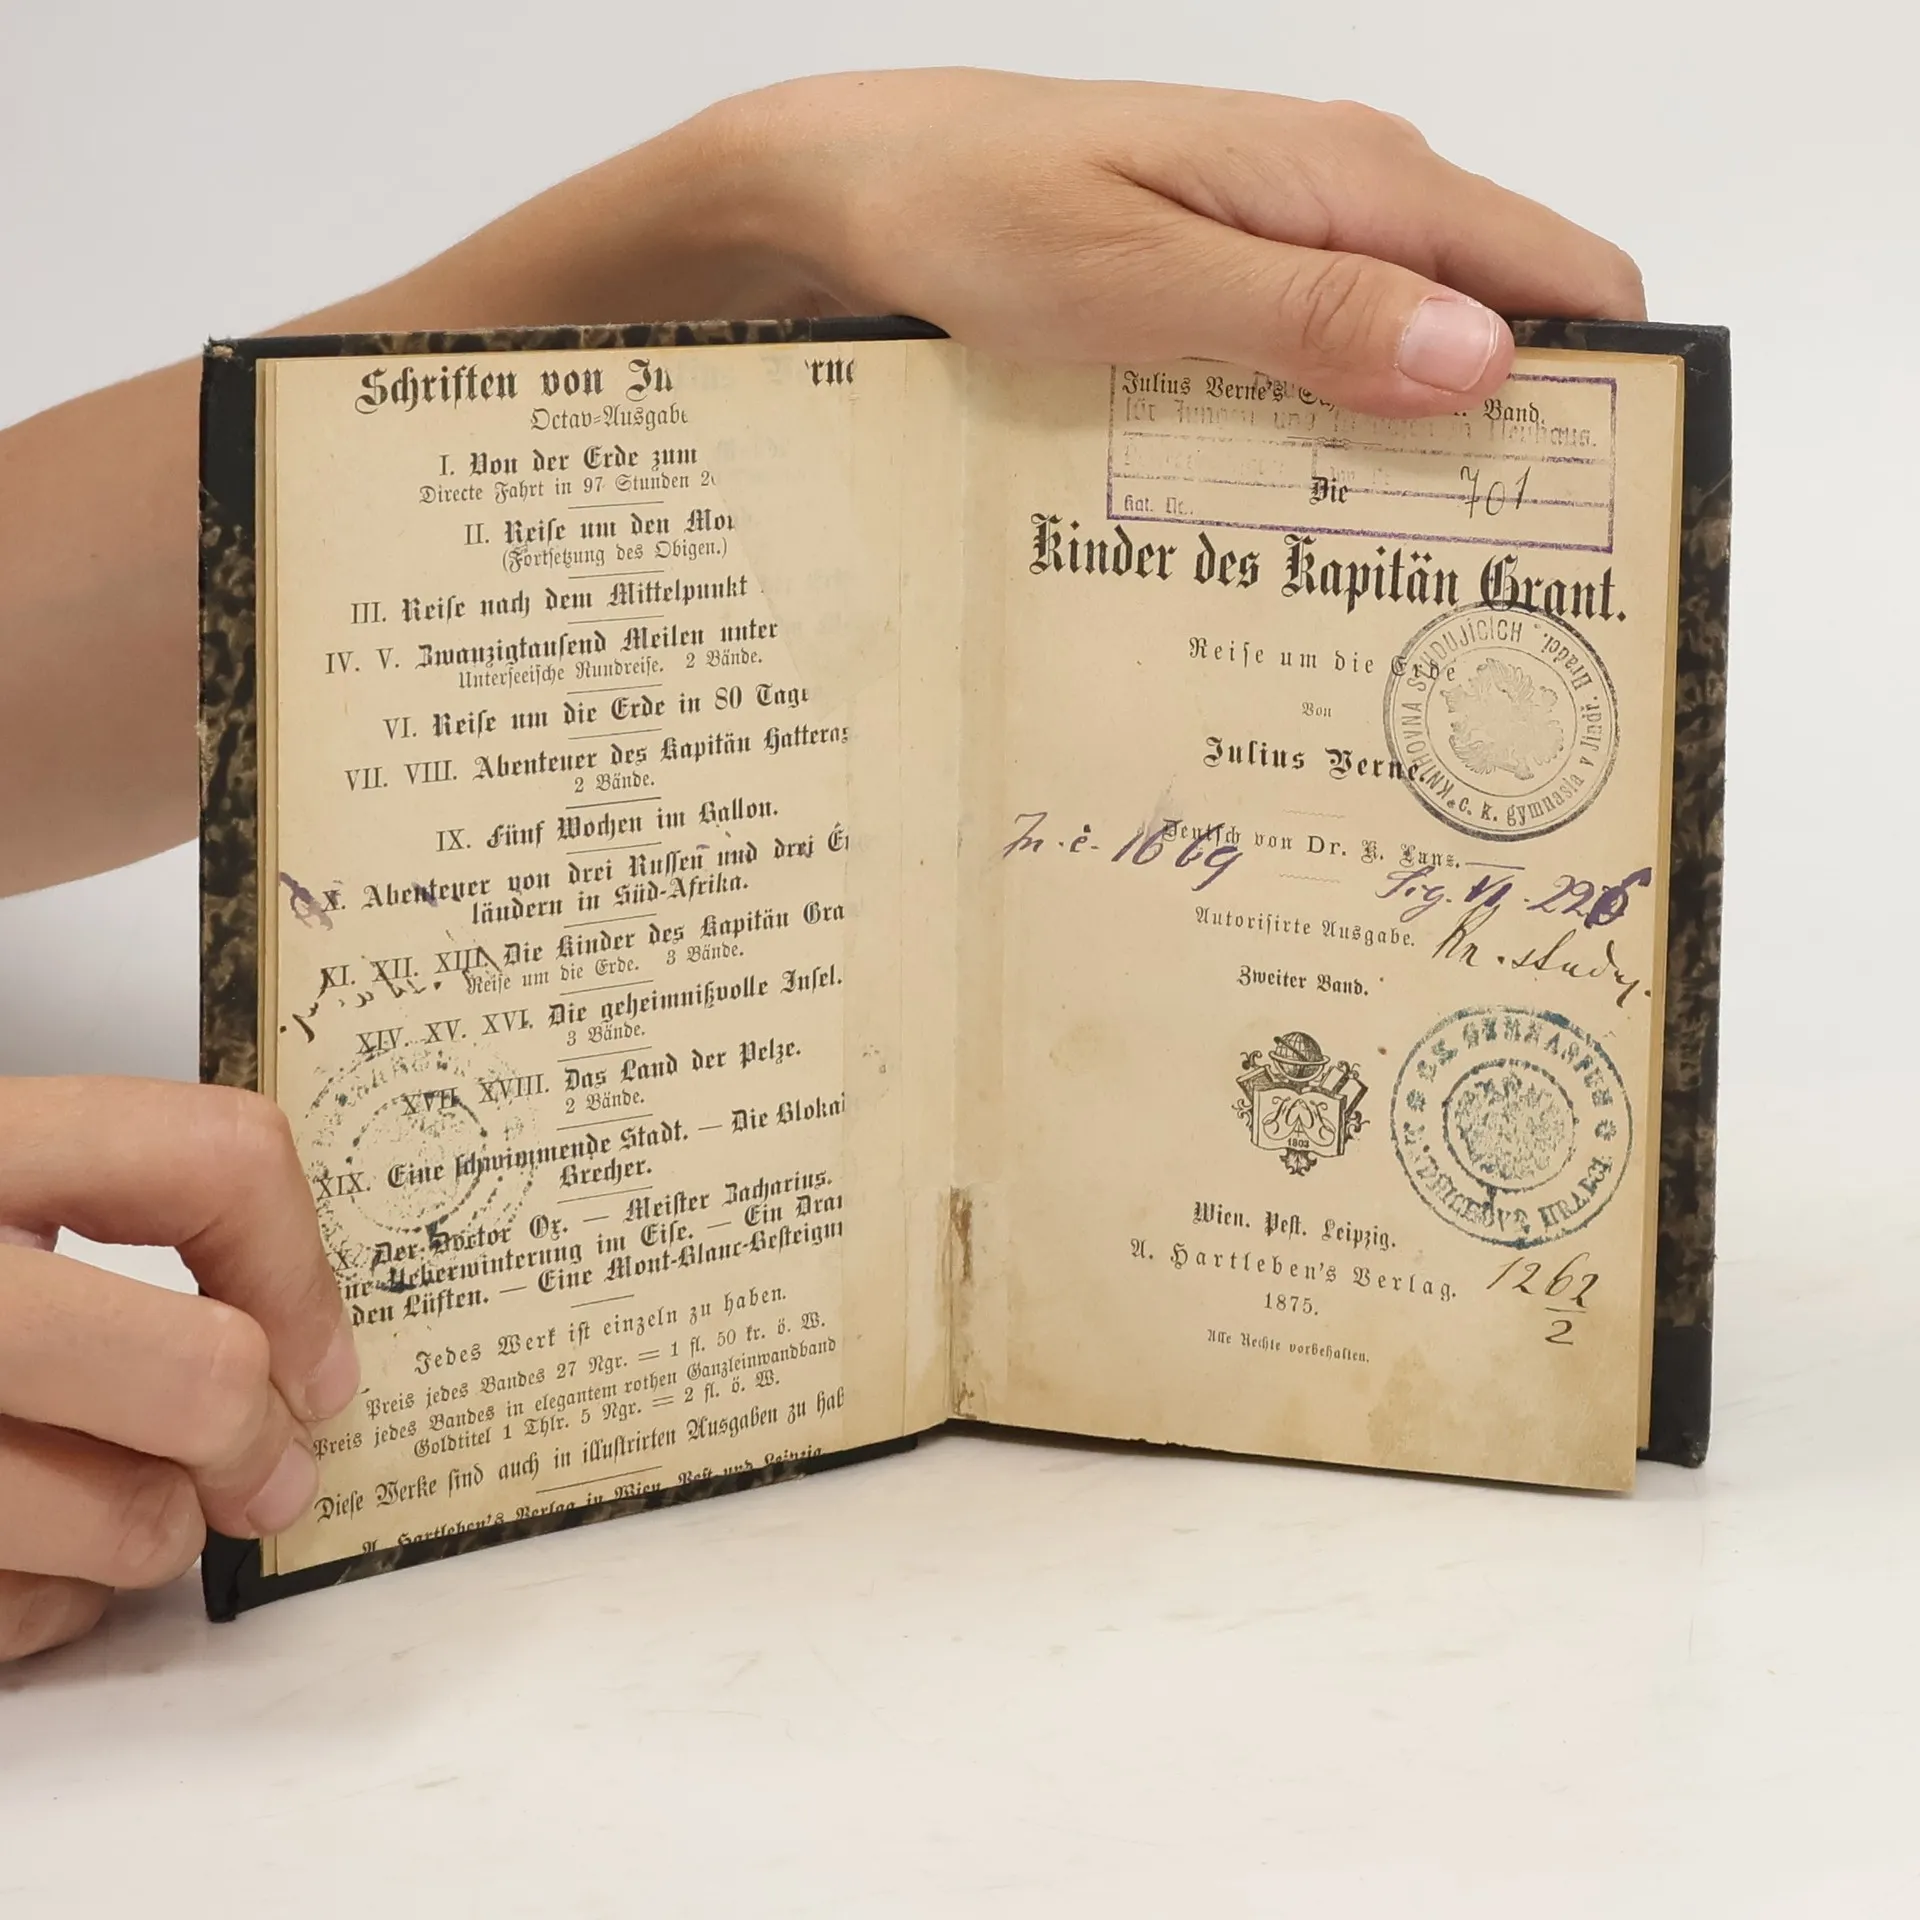 Schriften von
Octav-Ausgabe
I. Von der Erde zum
Directe Fahrt in 97 Stunden
II. Reise um den
(Fortsetzung des Obigen.)
III. Reise nach dem Mittelpunkt
IV. V. Zwanzigtausend Meilen unter
Unterseeische Rundreise. 2 Bände.
VI. Reise um die Erde in 80
VII. VIII. Abenteuer des Kapitän Hatteras
2 Bände.
IX. Fünf Wochen im Ballon.
X. Abenteuer von drei Russen und drei
ländern in Süd-Afrika.
XI. XII. XIII. Die Kinder des Kapitän
Reise um die Erde. 3 Bände.
XIV. XV. XVI. Die geheimnißvolle Insel.
3 Bände.
XVII. XVIII. Das Land der Pelze.
2 Bände.
XIX. Eine schwimmende Stadt. — Die
Brecher.
Der Doctor Ox. — Meister Zacharius.
Ueberwinterung im Eise. — Ein
den Lüften. — Eine Mont-Blanc-
Jedes Werk ist einzeln zu haben.
Preis jedes Bandes 27 Ngr. = 1 fl. 50 kr. ö. W.
Preis jedes Bandes in elegantem rothen Ganzleinwandband
Goldtitel 1 Thlr. 5 Ngr. = 2 fl. ö. W.
Diese Werke sind auch in illustrirten Ausgaben zu
A. Hartleben's Verlag in Wien, Pest und Leipzig
Julius Verne's Band.
Kat. Nr.
701
Die
Kinder des Kapitän Grant.
Reise um die Erde
Von
Julius Verne.
KNIHOVNA STUDUJÍCÍCH
c. k. gymnasia v Jindř. Hradci.
Deutsch von Dr. K. Lanz.
In. č. 1669
Sig. VI. 226
Autorisirte Ausgabe.
Zweiter Band.
1803
Wien. Pest. Leipzig.
A. Hartleben's Verlag.
1262
2
1875.
Alle Rechte vorbehalten.